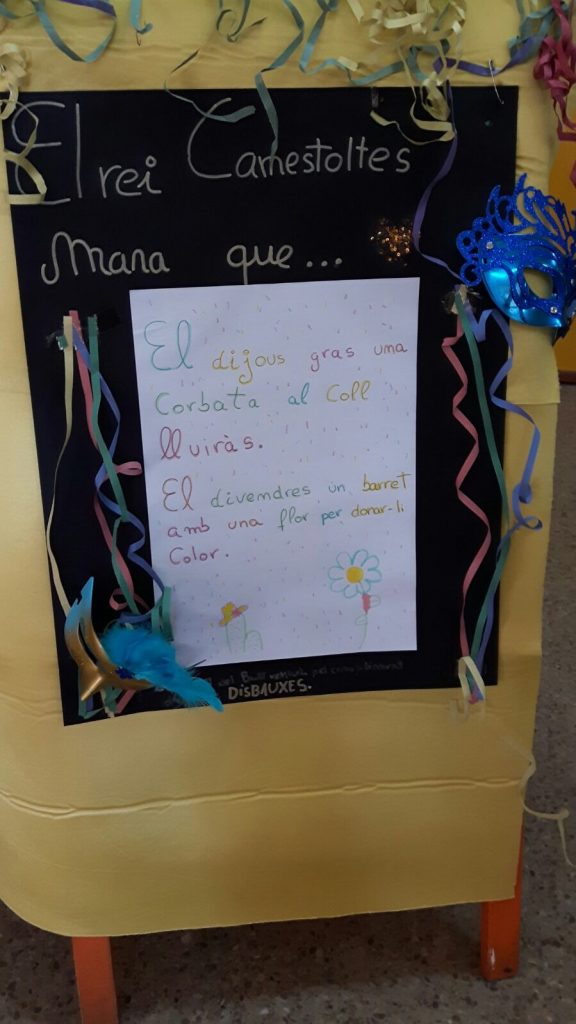 El rei Carnestoltes
Mana que...
El dijous gras una
Corbata al Coll
lluiràs.
El divendres un barret
amb una flor per donar-li
Color.
DISBAUXES.